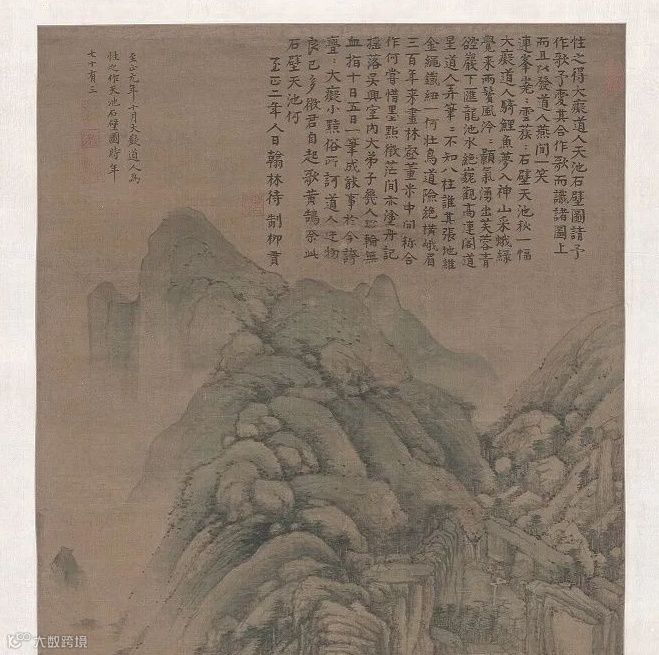 性之得大癡道人天池石壁圖請予
作歌予愛其合作歌而識諸圖上
而且以發道人燕間一笑
連峯 雲 石壁天池秋一幅
大癡道人騎鯉魚夢入神山采蛾綠
覺來兩鬢風泠:顥氣湧出芙蓉青
巖下匯龍池水絕巘觀高連閣道
星道人弄筆:不知八柱誰其張地維
金繩鐵紐一何壯鳥道險絕橫峨眉
三百年來畫林壑董米中間稱合
作何嘗惜墨點微茫間亦塗丹記
搖落吳興室內大弟子幾人斲輪無
血指十日五日一筆成能事於今誇
亹:大癡小黠俗所訶道人 物
良已多徵君自起歌黃鵠奈此
石壁天池何
至正二年人日翰林待制柳貫
至正元年十月大癡道人為
性之作天池石壁圖時年
七十有三
大数跨境